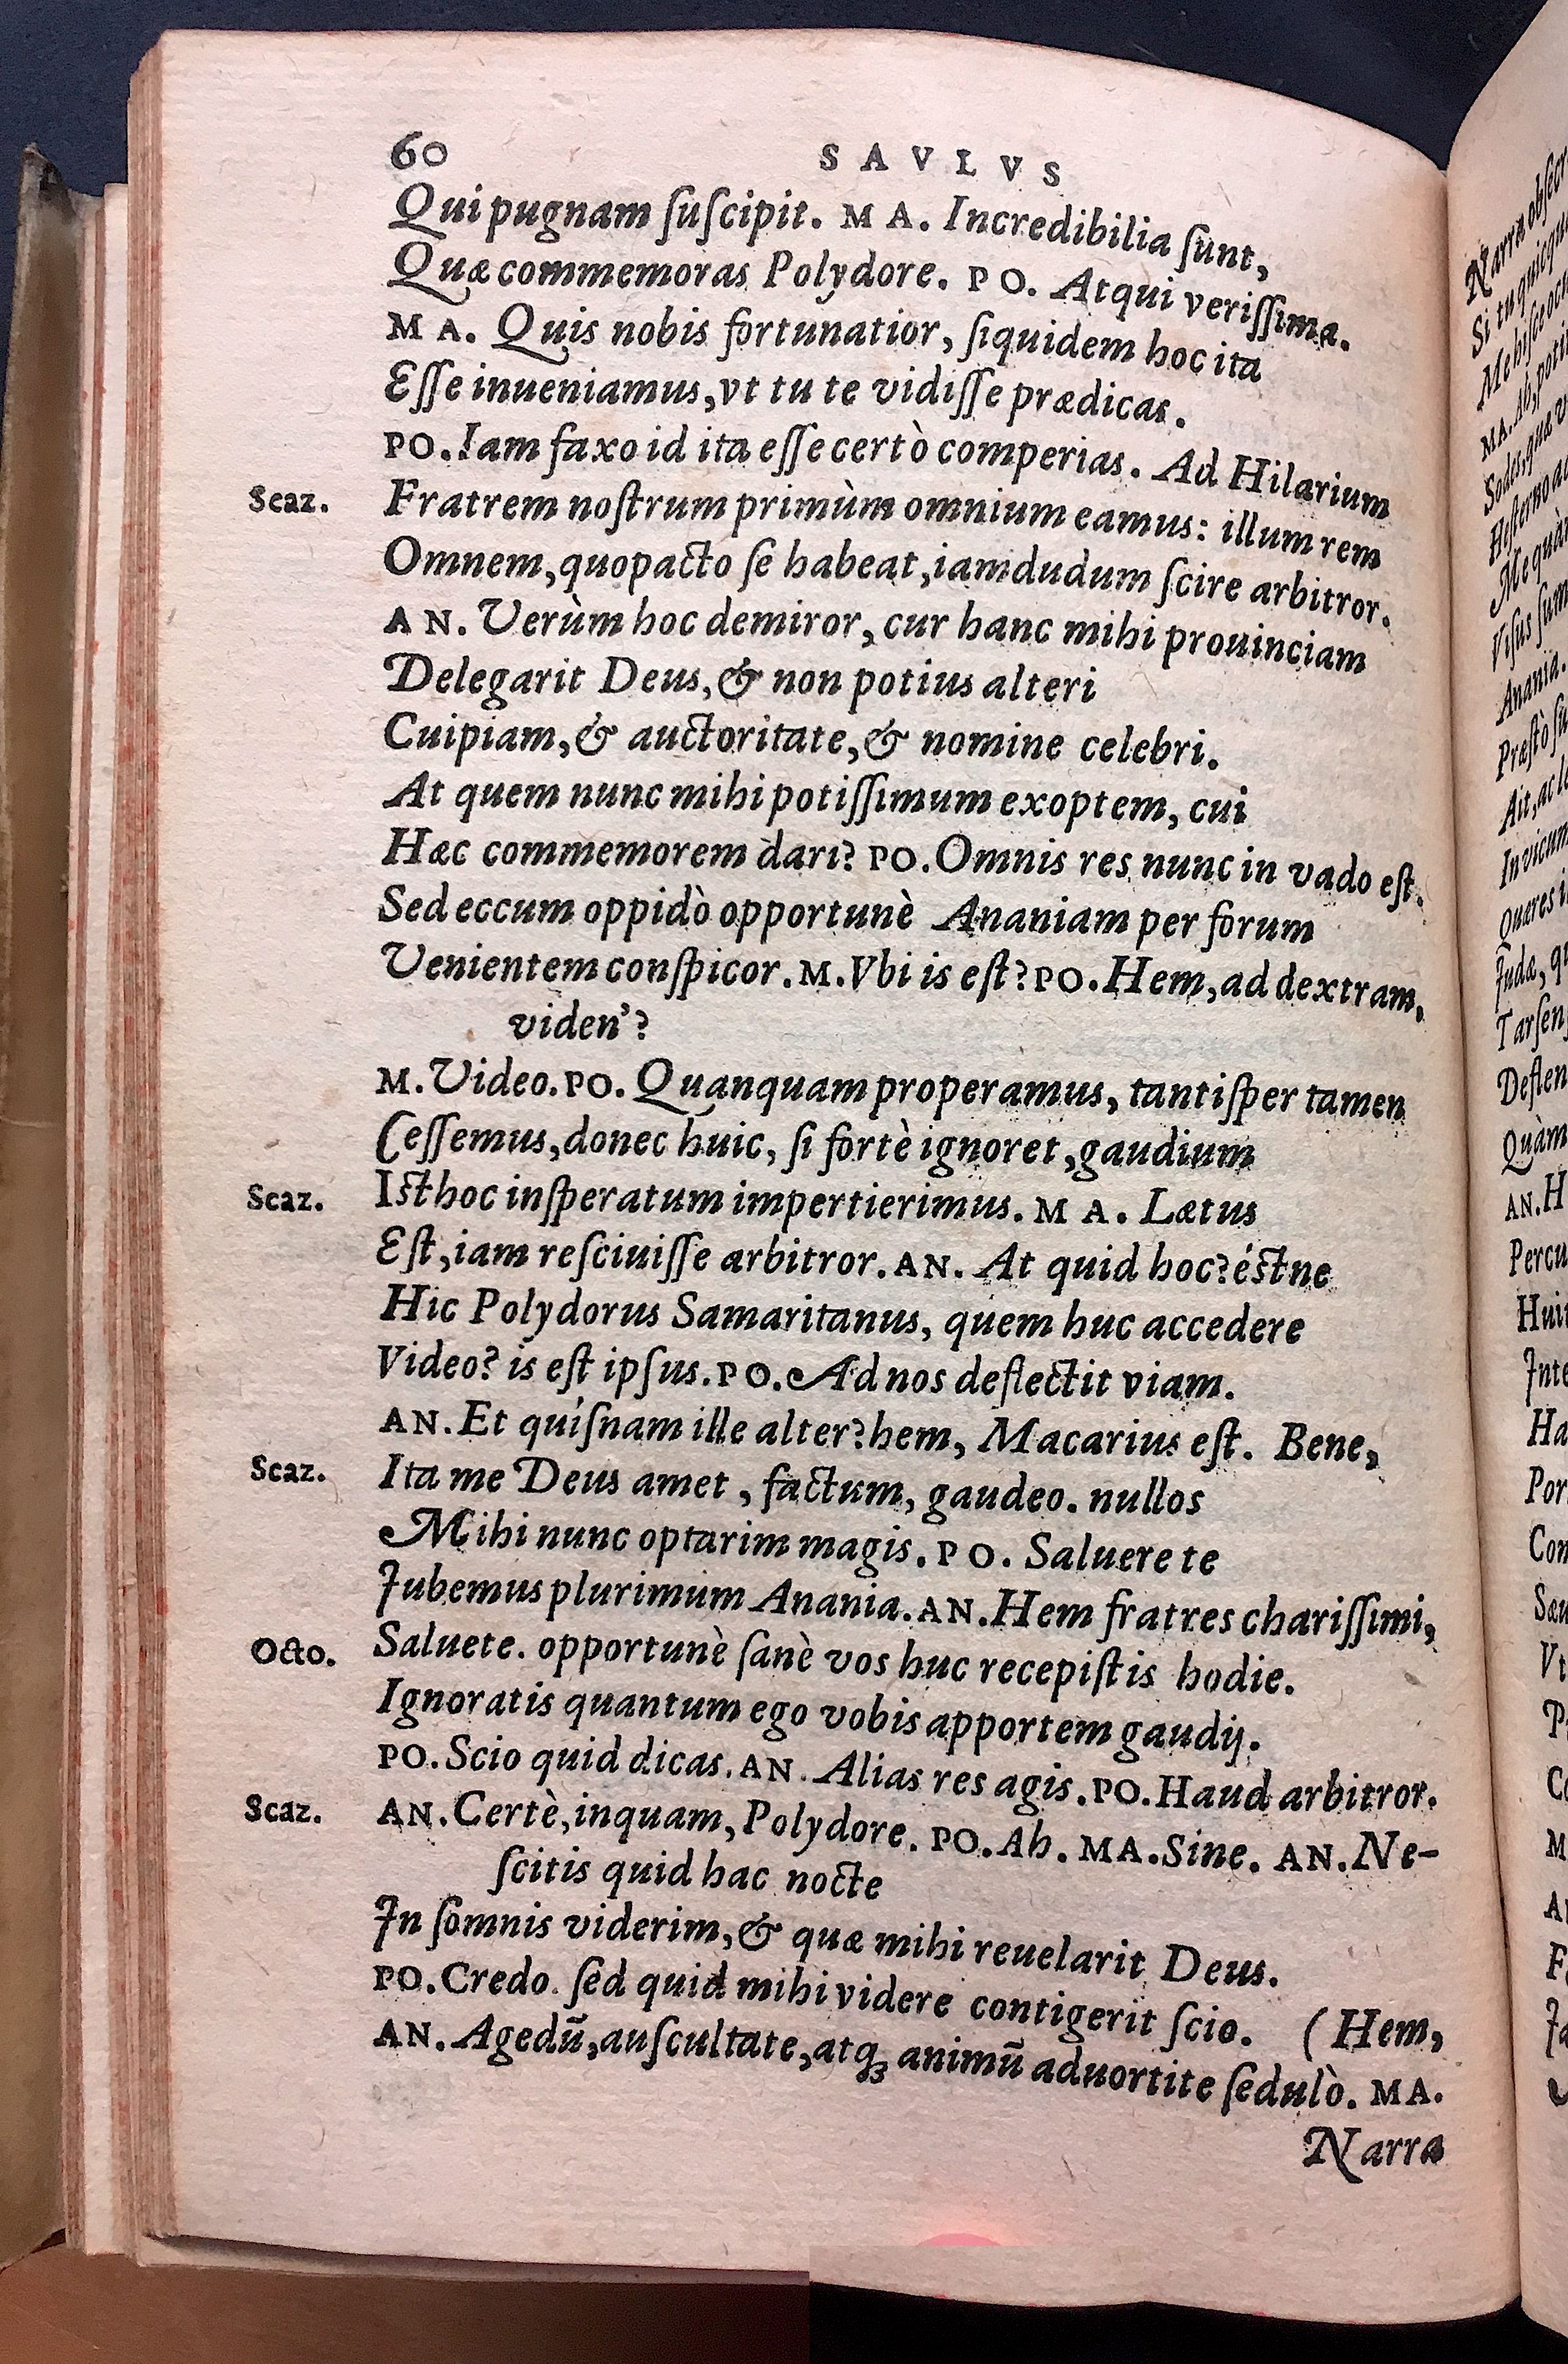 60 SAVLVS
Qui pugnam ſuſcipit. MA. Incredibilia ſunt,
Quæ commemoras Polydore. PO. Atqui veriſſima.
MA. Quis nobis fortunatior, ſiquidem hoc ita
Eſſe inueniamus, vt tu te vidiſſe prædicas.
PO. Iam faxo id ita eſſe certò comperias. Ad Hilarium
Scaz. Fratrem noſtrum primùm omnium eamus: illum rem
Omnem, quopacto ſe habeat, iamdudum ſcire arbitror.
AN. Verùm hoc demiror, cur hanc mihi prouinciam
Delegarit Deus, & non potius alteri
Cuipiam, & auctoritate, & nomine celebri.
At quem nunc mihi potiſſimum exoptem, cui
Hæc commemorem dari? PO. Omnis res nunc in vado eſt.
Sed eccum oppidò opportunè Ananiam per forum
Venientem conſpicor. M. Vbi is eſt? PO. Hem, ad dextram,
viden'?
M. Video. PO. Quanquam properamus, tantiſper tamen
Ceſſemus, donec huic, ſi fortè ignoret, gaudium
Scaz. Isthoc inſperatum impertierimus. MA. Lætus
Eſt, iam reſciuiſſe arbitror. AN. At quid hoc? éstne
Hic Polydorus Samaritanus, quem huc accedere
Video? is eſt ipſus. PO. Ad nos deflectit viam.
AN. Et quíſnam ille alter? hem, Macarius eſt. Bene,
Scaz. Ita me Deus amet, factum, gaudeo. nullos
Mihi nunc optarim magis. PO. Saluere te
Jubemus plurimùm Anania. AN. Hem fratres chariſſimi,
Octo. Saluete. opportunè ſanè vos huc recepiſtis hodie.
Ignoratis quantum ego vobis apportem gaudij.
PO. Scio quid dicas. AN. Alias res agis. PO. Haud arbitror.
Scaz. AN. Certè, inquam, Polydore. PO. Ah. MA. Sine. AN. Ne-
ſcitis quid hac nocte
In ſomnis viderim, & quæ mihi reuelarit Deus.
PO. Credo. ſed quid mihi videre contigerit ſcio. (Hem,
AN. Agedū, auſcultate, atqꝫ animū aduortite ſedulò. MA.
Narra